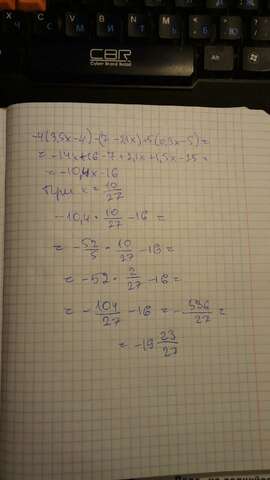 CBR
Cyber Brand Retail
-4(3,5x-4)-(7-2,1x)+5(0,3x-5)=
=-14x+16-7+2,1x+1,5x-25=
=-10,4x-16
При x=10/27
-10,4*10/27-16=
=-52/5*10/27-16=
=-52*2/27-16=
=-104/27-16=-536/27=
=-19 23/27